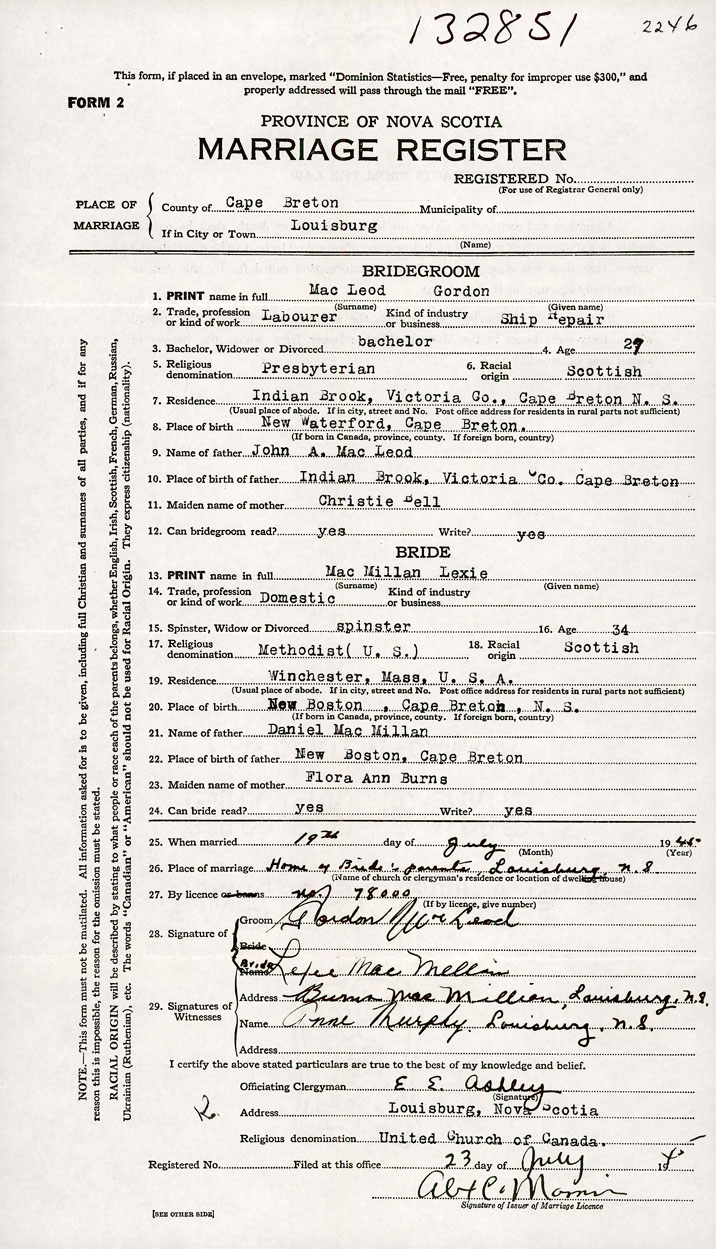 132851 2246
This form, if placed in an envelope, marked “Dominion Statistics—Free, penalty for improper use $300,” and
properly addressed will pass through the mail “FREE”.
FORM 2
PROVINCE OF NOVA SCOTIA
MARRIAGE REGISTER
REGISTERED No.
(For use of Registrar General only)
PLACE OF MARRIAGE
County of Cape Breton Municipality of
If in City or Town Louisburg
(Name)
BRIDEGROOM
1. PRINT name in full Mac Leod Gordon
(Surname) (Given name)
2. Trade, profession or kind of work Labourer Kind of industry or business Ship Repair
3. Bachelor, Widower or Divorced bachelor 4. Age 29
5. Religious denomination Presbyterian 6. Racial origin Scottish
7. Residence Indian Brook, Victoria Co., Cape Breton N. S.
(Usual place of abode. If in city, street and No. Post office address for residents in rural parts not sufficient)
8. Place of birth New Waterford, Cape Breton.
(If born in Canada, province, county. If foreign born, country)
9. Name of father John A. Mac Leod
10. Place of birth of father Indian Brook, Victoria Co. Cape Breton
11. Maiden name of mother Christie Bell
12. Can bridegroom read? yes Write? yes
BRIDE
13. PRINT name in full Mac Millan Lexie
(Surname) (Given name)
14. Trade, profession or kind of work Domestic Kind of industry or business
15. Spinster, Widow or Divorced spinster 16. Age 34
17. Religious denomination Methodist( U. S.) 18. Racial origin Scottish
19. Residence Winchester, Mass, U. S. A.
(Usual place of abode. If in city, street and No. Post office address for residents in rural parts not sufficient)
20. Place of birth New Boston , Cape Breton , N. S.
(If born in Canada, province, county. If foreign born, country)
21. Name of father Daniel Mac Millan
22. Place of birth of father New Boston, Cape Breton
23. Maiden name of mother Flora Ann Burns
24. Can bride read? yes Write? yes
25. When married 19th day of July 1945
(Month) (Year)
26. Place of marriage Home of Bride's parents, Louisburg, N.S.
(Name of church or clergyman's residence or location of dwelling house)
27. By licence or banns no. 78000
(If by licence, give number)
28. Signature of Groom Gordon McLeod
Bride
Bride Name Lexie Mac Millan
29. Signatures of Witnesses
Address Burns Mac Millian, Louisburg, N.S.
Name Anne Murphy. Louisburg, N.S.
Address
I certify the above stated particulars are true to the best of my knowledge and belief.
Officiating Clergyman E. E. Ashley
(Signature)
Address Louisburg, Nova Scotia
Religious denomination United Church of Canada.
Registered No. Filed at this office 23 day of July 19
Signature of Issuer of Marriage Licence
[SEE OTHER SIDE]
NOTE.—This form must not be mutilated. All information asked for is to be given, including full Christian and surnames of all parties, and if for any
reason this is impossible, the reason for the omission must be stated.
RACIAL ORIGIN will be described by stating to what people or race each of the parents belongs, whether English, Irish, Scottish, French, German, Russian,
Ukrainian (Ruthenian), etc. The words “Canadian” or “American” should not be used for Racial Origin. They express citizenship (nationality).